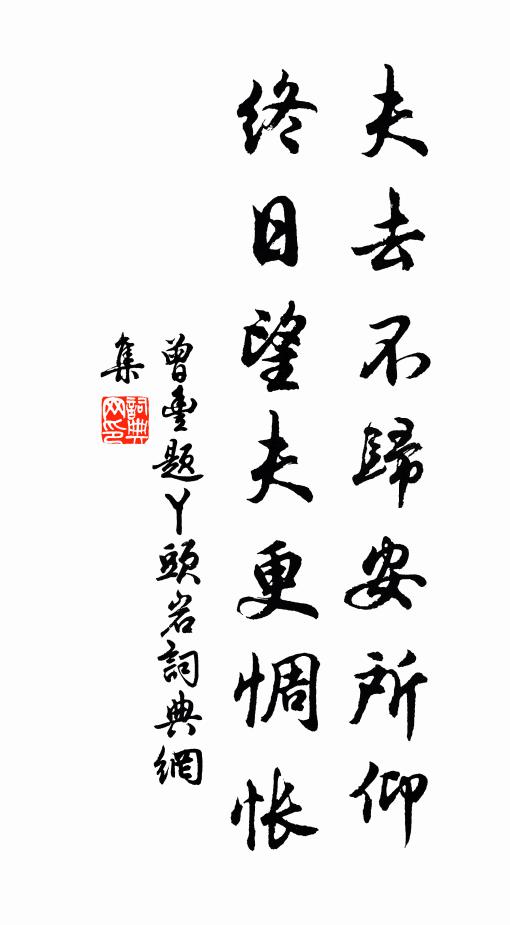 夫去不歸安所仰
終日望夫更惆怅
曾豊題丫頭岩詞典網
集
詞典
网印